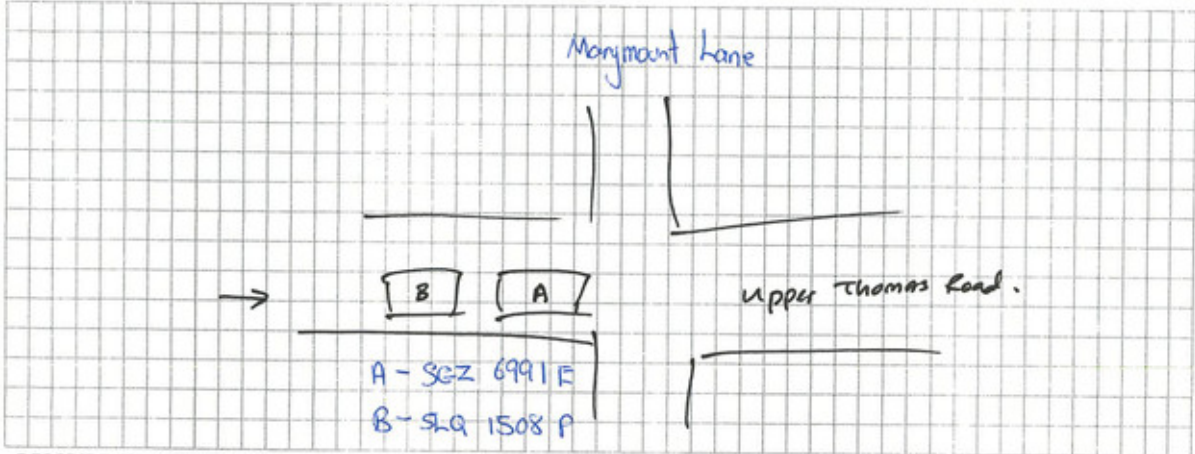 Marymount Lane
B
A
Upper Thomas Road.
A - SGZ 6991 E
B - SLQ 1508 P